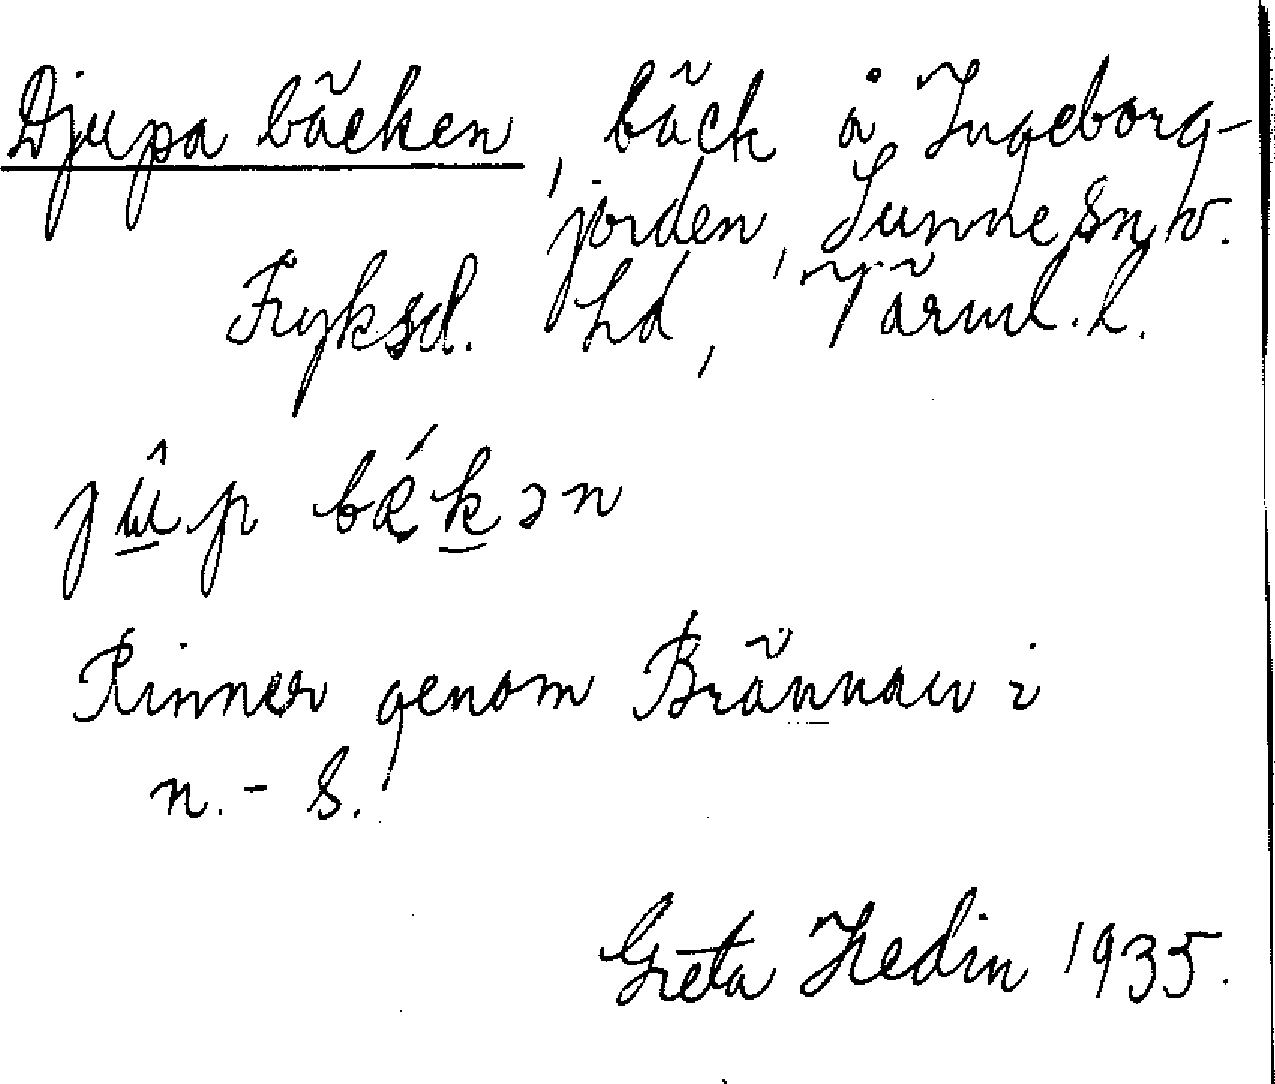 Djupa bäcken, bäck å Ingeborg-
jorden, Sunne sn, v.
Fryksd. hd, Värml. l.
jɯ̂p bǽkən
Rinner genom Brännan i
n. - s.
Greta Hedin 1935.